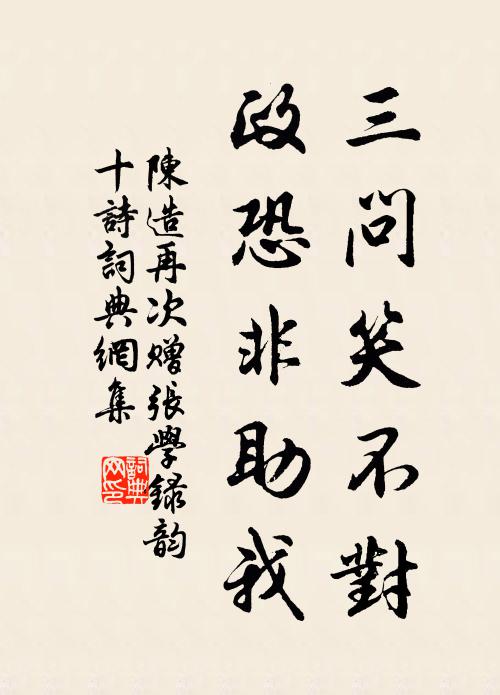 三問笑不對
政恐非助我
陳造再次贈張學錄韵
十詩詞典網集
詞典
网印